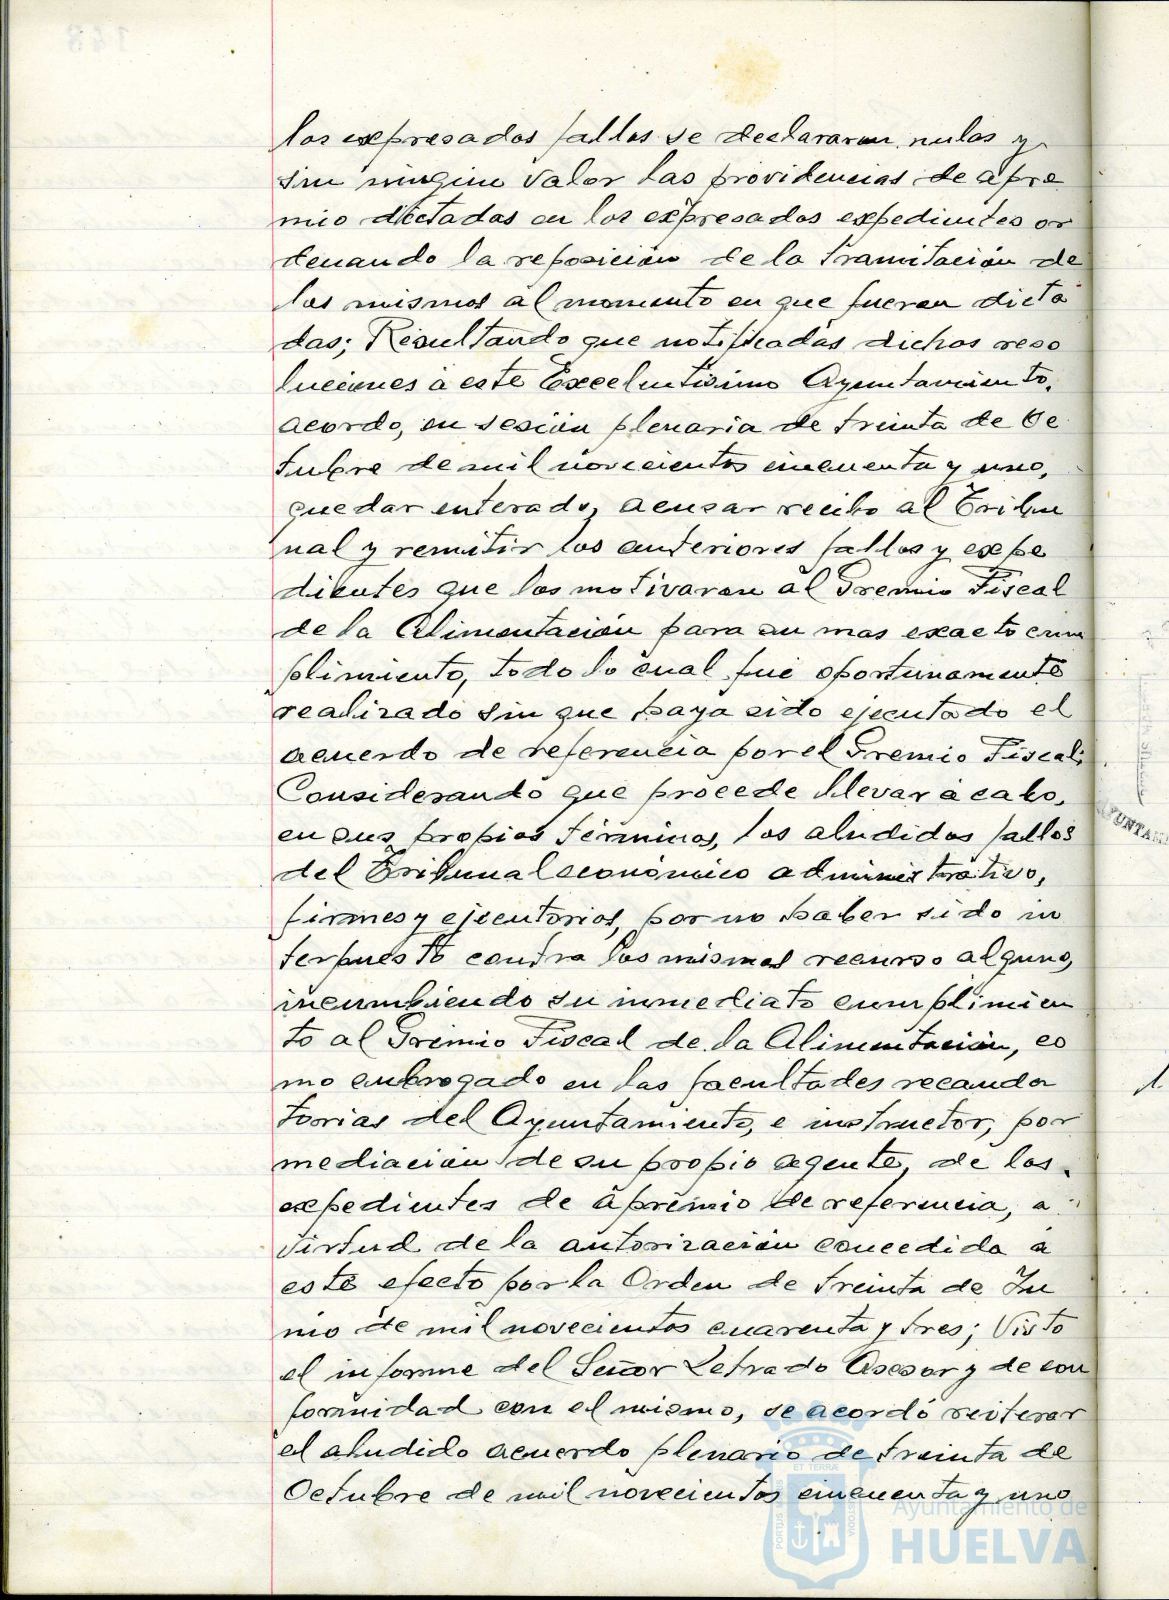 los expresados fallos se declararon nulos y
sin ningun valor las providencias de apre
mio dictadas en los expresados expedientes or
denando la reposición de la tramitación de
los mismos al momento en que fueron dicta
das; Resultando que notificadas dichas reso
luciones a este Excelentisimo Ayuntamiento,
acordo, en sesión plenaria de treinta de Oc
tubre de mil novecientos cincuenta y uno,
quedar enterado, acusar recibo al Tribu
nal y remitir los anteriores fallos y expe
dientes que los motivaron al Gremio Fiscal
de la Alimentación para su mas exacto cum
plimiento, todo lo cual fué oportunamente
realizado sin que haya sido ejecutado el
acuerdo de referencia por el Gremio Fiscal;
Considerando que procede llevar a cabo,
en sus propios términos, los aludidos fallos
del Tribunal económico administrativo,
firmes y ejecutorios, por no haber sido in
terpuesto contra los mismos recurso alguno,
incumbiendo su inmediato cumplimien
to al Gremio Fiscal de la Alimentación, co
mo subrogado en las facultades recauda
torias del Ayuntamiento, e instructor, por
mediación de su propio agente, de los
expedientes de apremio de referencia, a
virtud de la autorización concedida a
este efecto por la Orden de treinta de Ju
nio de mil novecientos cuarenta y tres; Visto
el informe del Señor Letrado Asesor y de con
formidad con el mismo, se acordó reiterar
el aludido acuerdo plenario de treinta de
Octubre de mil novecientos cincuenta y uno
Ayuntamiento de
HUELVA